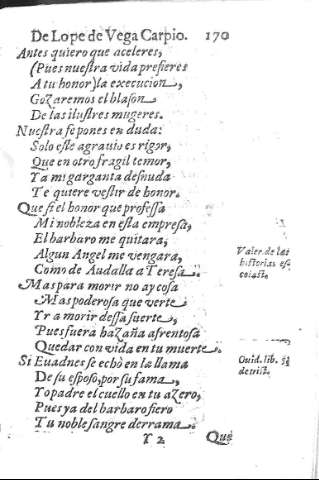 De Lope de Vega Carpio. 170
Antes quiero que aceleres,
(Pues nueſtra vida prefieres
A tu honor) la execucion,
Gozaremos el blaſon
De las iluſtres mugeres.
Nueſtra ſe pones en duda:
Solo eſte agrauio es rigor,
Que en otro fragil temor,
Ya mi garganta deſnuda
Te quiere veſtir de honor.
Que ſi el honor que profeſſa
Mi nobleza en eſta empreſa,
El barbaro me quitara,
Algun Angel me vengara,
Como de Audalla a Tereſa.
Mas para morir no ay coſa
Mas poderoſa que verte
Yr a morir deſſa fuerte,
Pues fuera hazaña afrentoſa
Quedar con vida en tu muerte.
Si Euadnes ſe echò en la llama
De ſu eſpoſo, por ſu fama,
Yo padre el cuello en tu azero,
Pues ya del barbaro fiero
Tu noble ſangre derrama.
Y 2 Que
Valer. de las
hiſtorias eſ
Ouid. lib. 5
de triſt.